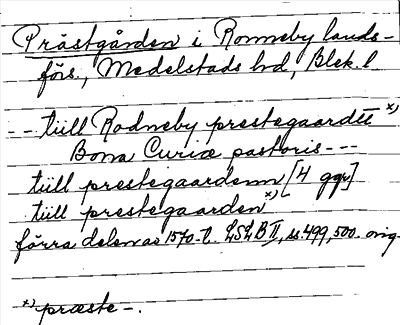 Prästgården i Ronneby lands-
förs., Medelstads hd, Blek. l.
-- till Rodneby prestegaardtt x)
Bona Curiæ pastoris ---
till prestegaardenn [4 ggr]
till prestegaarden x)
förra delen av 1570-t. LSLB II, ss. 499, 500. orig.
x) præste-.